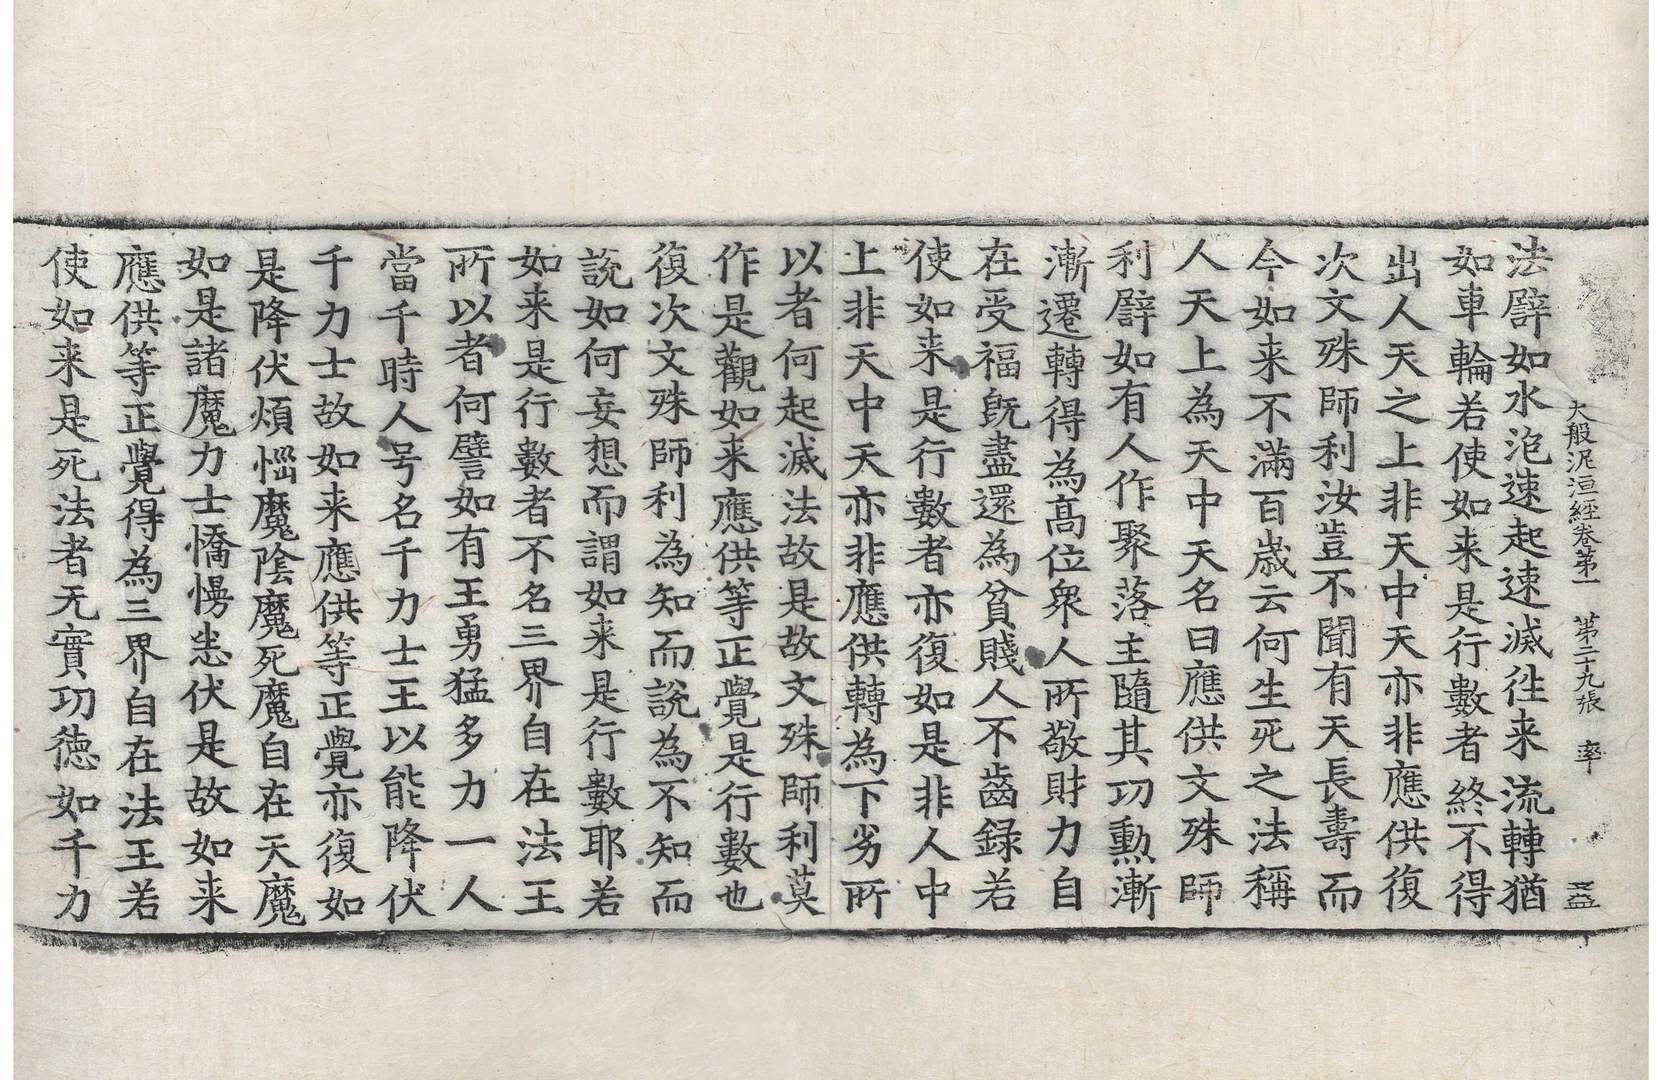 大般泥洹經卷第一　第二十九張　率　益
法譬如水泡速起速滅往来流轉猶
如車輪若使如来是行數者終不得
出人天之上非天中天亦非應供復
次文殊師利汝豈不聞有天長壽而
今如来不滿百歲云何生死之法稱
人天上為天中天名曰應供文殊師
利譬如有人作聚落主隨其功勲漸
漸遷轉得為高位衆人所敬財力自
在受福旣盡還為貧賤人不齒録若
使如来是行數者亦復如是非人中
上非天中天亦非應供轉為下劣所
以者何起滅法故是故文殊師利莫
作是觀如来應供等正覺是行數也
復次文殊師利為知而說為不知而
說如何妄想而謂如来是行數耶若
如来是行數者不名三界自在法王
所以者何譬如有王勇猛多力一人
當千時人号名千力士王以能降伏
千力士故如来應供等正覺亦復如
是降伏煩惱魔陰魔死魔自在天魔
如是諸魔力士憍慢恚伏是故如来
應供等正覺得為三界自在法王若
使如来是死法者无實功徳如千力